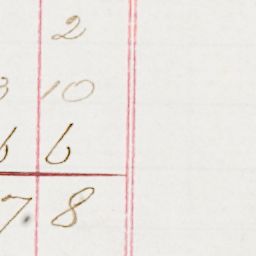 2
3 10
6 6
7. 8